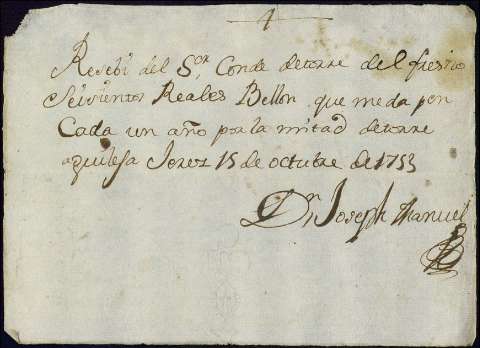 4
Resebi del S.or Conde detorre del fresno
Seisientos Reales Bellon que me da pon
Cada un año por la mitad detorre
aguilesa Jerez 15 de octubre de 1753
Dn Joseph Manuel